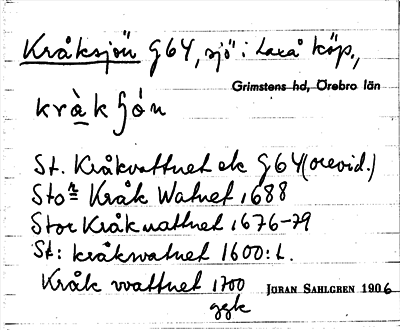 Kråksjön G64, sjö i Laxå köp.,
Grimstens hd, Örebro län
kråkʃön
St. Kråkvattnet ek G64 (orevid.)
Stoᴿ Kråk Watnet 1688
Stor Kråkwattnet 1676-79
St: kråkwatnet 1600:t.
Kråk wattnet 1700
ggk
JÖRAN SAHLGREN 1906